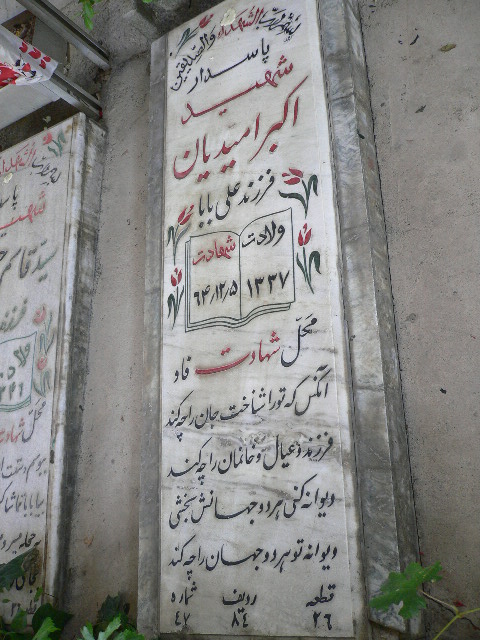 بسم رب الشهداء والصدیقین
پاسدار
شهید
اکبر امیدیان
فرزند علی بابا
ولادت شهادت
۱۳۳۷ ۶۴/۱۲/۵
محل شهادت فاو
آنکس که تورا شناخت جان را چه کند
فرزند و عیال و خانمان را چه کند
دیوانه کنی هر دو جهانش بخشی
دیوانه تو هر دو جهان را چه کند
قطعه ردیف شماره
۲۶ ۸۴ ۴۲
پاسدار
شهید
سید قاسم
فرزند
محل شهادت